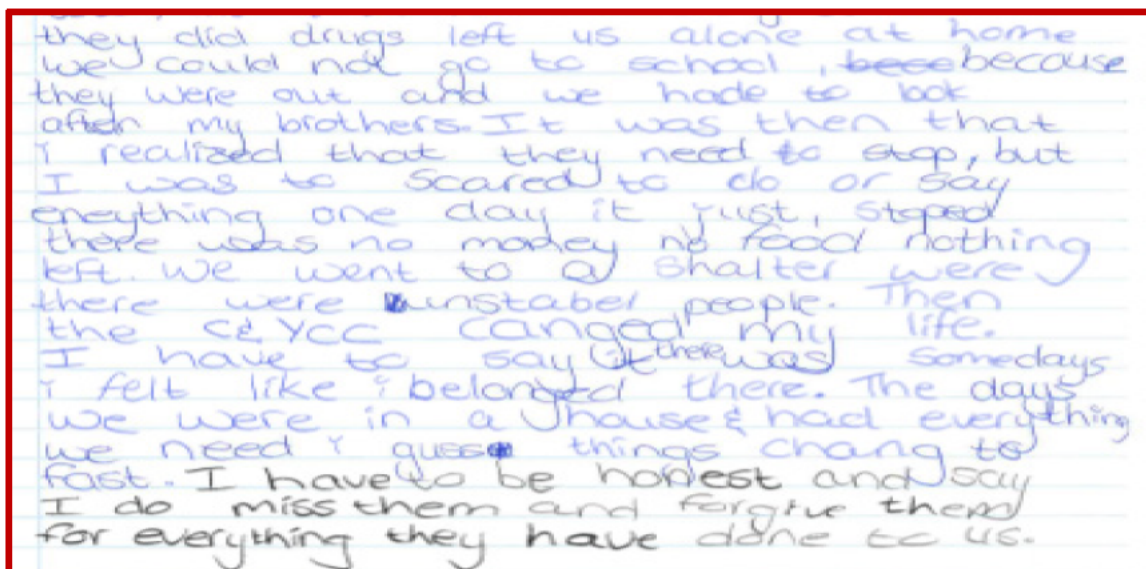 they did drugs left us alone at home
we could not go to school, because
they were out and we hade to look
after my brothers. It was then that
i realized that they need to stop, but
I was to scared to do or say
eneything one day it just, stoped
there was no money no food nothing
left. We went to a shalter were
there were unstabel people. Then
the C&YCC canged my life.
I have to say there was somedays
i felt like i belonged there. The days
we were in a house & had everything
we need i guss things chang to
fast. I have to be honest and say
I do miss them and forgive them
for everything they have done to us.